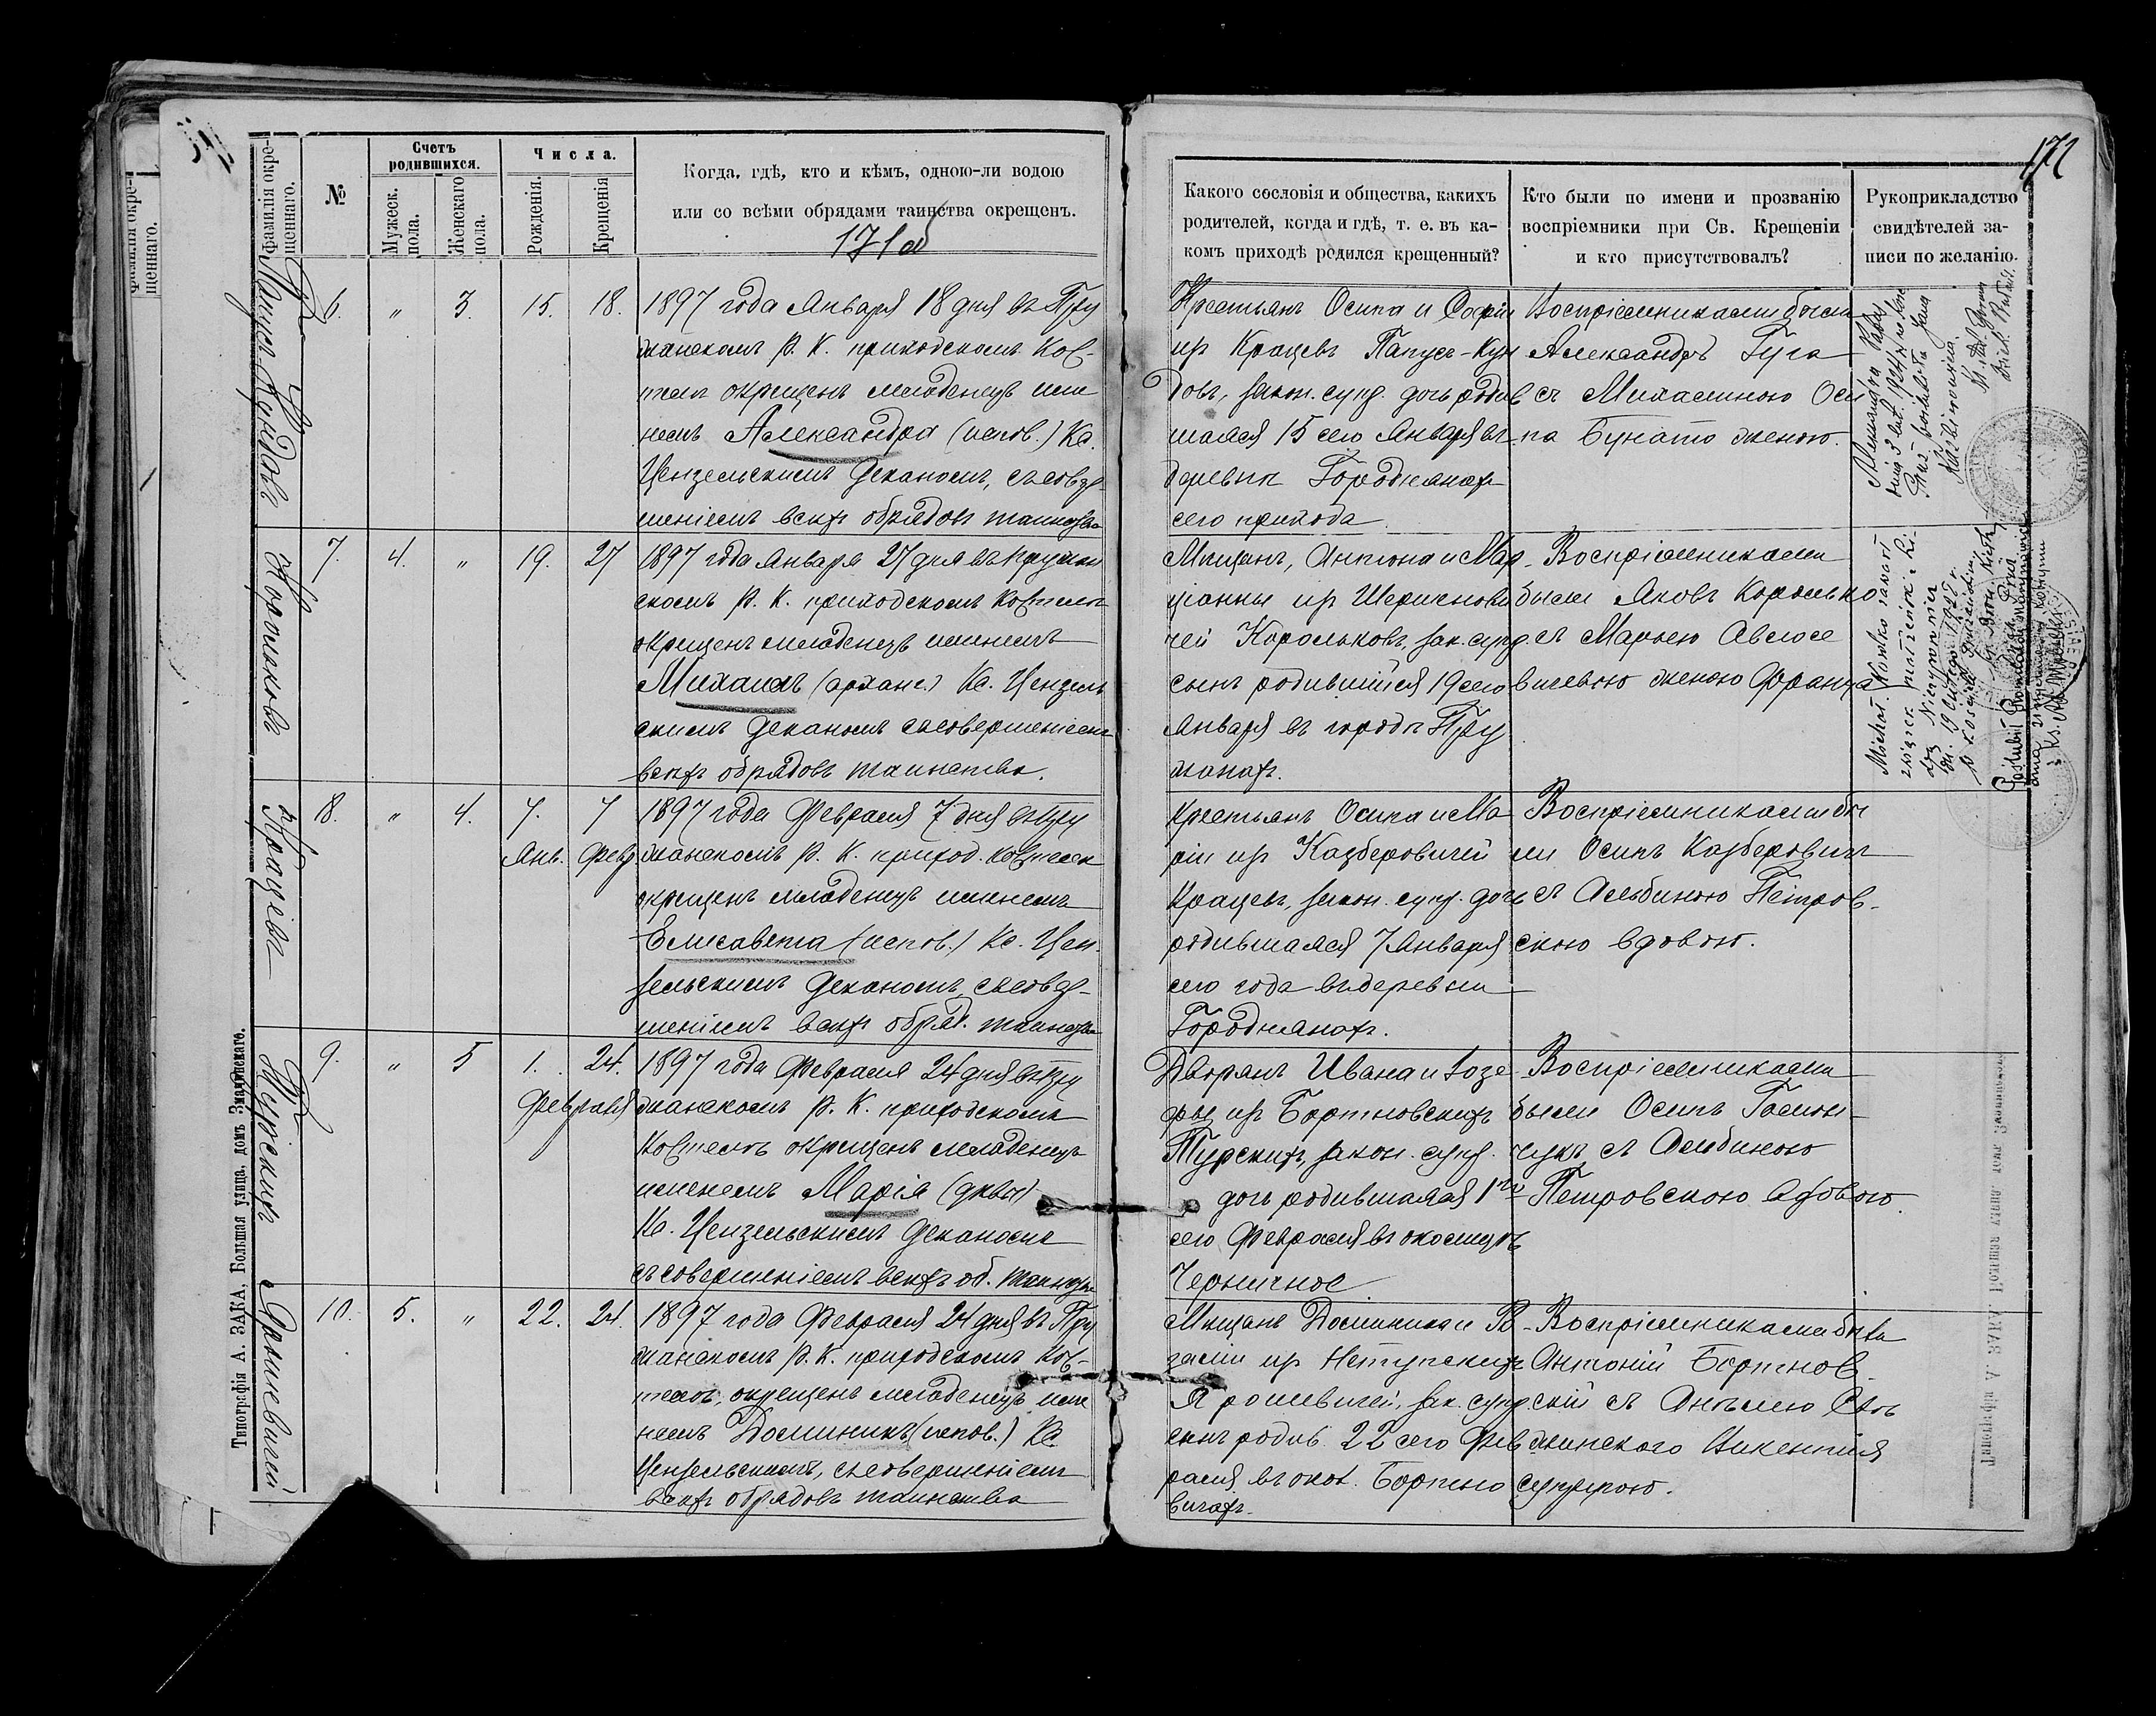 172
Фамилія окрещеннаго.
№
Счетъ родившихся.
Мужеск. пола.
Женскаго пола.
Числа.
Рожденія.
Крещенія
Когда, гдѣ, кто и кѣмъ, одною-ли водою
или со всѣми обрядами таинства окрещенъ.
171а
Какого сословія и общества, какихъ
родителей, когда и гдѣ, т. е. въ ка-
комъ приходѣ родился крещенный?
Кто были по имени и прозванію
воспріемники при Св. Крещеніи
и кто присутствовалъ?
Рукоприкладство
свидѣтелей за-
писи по желанію.
Папусъ-Кундовъ
6. " 3. 15. 18.
1897 года Января 18 дня въ Пру
жанскомъ Р. К. приходскомъ Кос-
телѣ окрещенъ младенецъ име
немъ Александра (испов.) Кс.
Цензельскимъ Деканомъ, съ совер-
шеніемъ всѣхъ обрядовъ таинства
Крестьянъ Осипа и Софіи
изъ Крацевъ Папусъ-Кун
довъ, закон. супр. дочь родив
шаяся 15 сего Января въ
деревнѣ Городнянахъ
сего прихода
Воспріемниками были
Александръ Гуга
съ Михалиною Оси
па Бунато женою.
Корольковъ
7. 4. " 19. 27
1897 года Января 27 дня въ Пружан
скомъ Р. К. приходскомъ Костелѣ
окрещенъ младенецъ именемъ
Михаилъ (арханг.) Кс. Цензель
скимъ Деканомъ съ совершеніемъ
всѣхъ обрядовъ таинства.
Мѣщанъ, Антона и Мар-
ціанны изъ Шеричнови
чей Корольковъ, зак. супр.
сынъ родившійся 19 сего
Января въ городѣ Пру
жанахъ.
Воспріемниками
были Яковъ Королько
съ Марьею Авгюсе
вичевою женою Франца
Крацевъ
8. " 4. 7. 7
Янв. Февр
1897 года Февраля 7 дня въ Пру
жанскомъ Р. К. приход. Костелѣ
окрещенъ младенецъ именемъ
Елисавета (испов.) Кс. Цен-
зельскимъ Деканомъ, съ совер-
шеніемъ всѣхъ обряд. таинства
Крестьянъ Осипа и Ма
ріи изъ Казберовичей
Крацевъ, закон. супр. дочь
родившаяся 7 Января
сего года въ деревни
Городнянахъ.
Воспріемниками бы
ли Осипъ Казберовичъ
съ Альбиною Петров-
скою вдовою.
Турскихъ
9. " 5 1. 24.
Февраля
1897 года Февраля 24 дня въ Пру
жанскомъ Р. К. приходскомъ
Костелѣ окрещенъ младенецъ
именемъ Марія (дѣвы)
Кс. Цензельскимъ Деканомъ
съ совершеніемъ всѣхъ об. таинства
Дворянъ Ивана и Іозе
фы изъ Бортновскихъ
Турскихъ, закон. супр.
дочь родившаяся 1го
сего Февраля въ околицѣ
Черничное
Воспріемниками
были Осипъ Гамон-
чукъ съ Альбиною
Петровскою вдовою.
Ярошевичей
10. 5. " 22. 24.
1897 года Февраля 24 дня въ Пру
жанскомъ Р. К. приходскомъ Кос-
телѣ, окрещенъ младенецъ име
немъ Доминикъ (испов.) Кс.
Цензельскимъ, съ совершеніемъ
всѣхъ обрядовъ таинства
Мѣщанъ Доминика и Ро-
заліи изъ Нетупскихъ
Ярошевичей, зак. супр.
сынъ родив. 22 сего Фев
раля въ окол. Бортно
вичахъ.
Воспріемниками были
Антоній Бортнов-
скій съ Анѣлею Свѣ
жинскаго Викентія
супругою.
Типографія А. ЗАКА, Большая улица, домъ Знаменскаго.